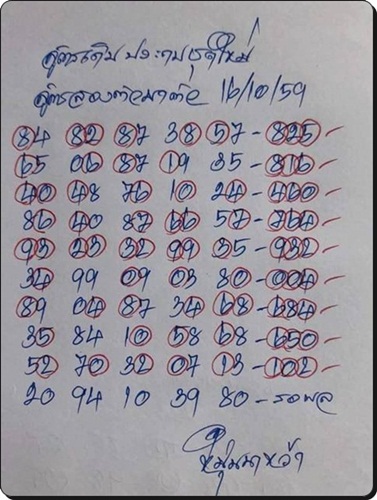 สูตรเดิม ประกบชุดใหม่
สูตรสองตัวมาต่อ 16/10/59
84 82 87 38 57 - 825
65 06 87 19 35 - 816
40 48 76 10 24 - 460
86 40 87 66 57 - 764
93 23 32 99 35 - 932
34 99 09 03 80 - 004
89 04 87 34 68 - 684
35 84 10 58 68 - 650
52 70 32 07 13 - 102
20 94 10 39 80 - รอผล